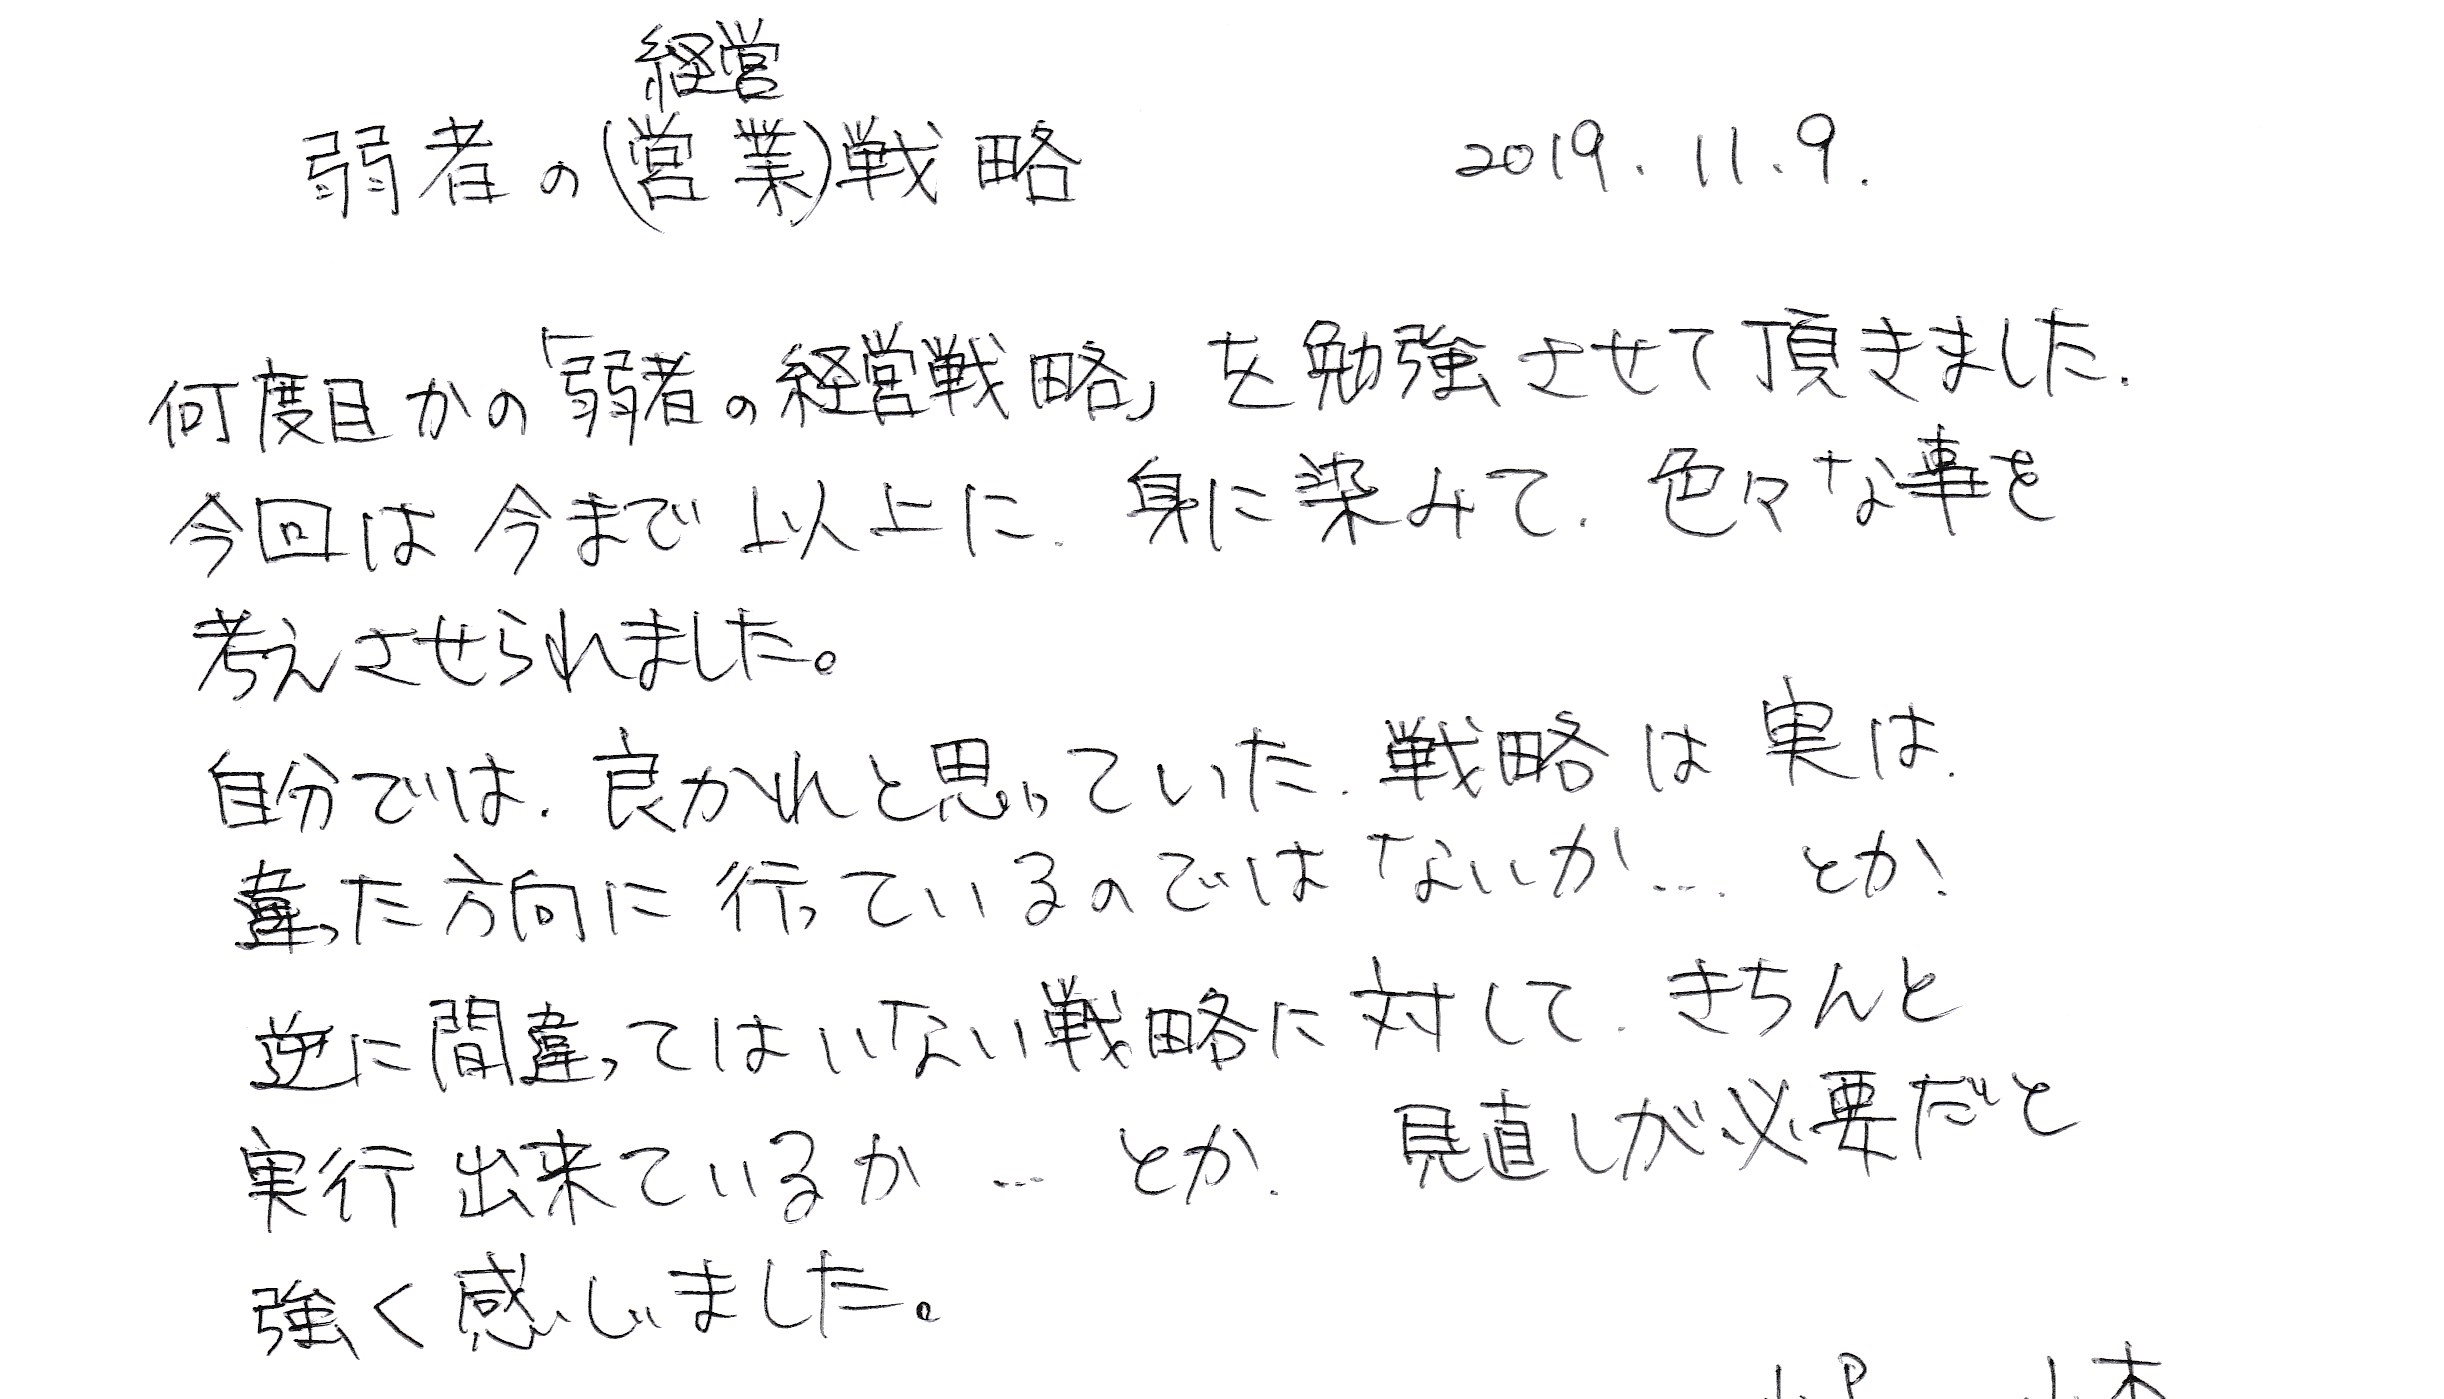 経営
弱者の(営業)戦略 2019.11.9.
何度目かの「弱者の経営戦略」を勉強させて頂きました.
今回は今まで以上に.身に染みて.色々な事を
考えさせられました。
自分では.良かれと思っていた.戦略は実は.
違った方向に行っているのではないか… とか.
逆に間違ってはいない戦略に対して.きちんと
実行出来ているか… とか. 見直しが必要だと
強く感じました。